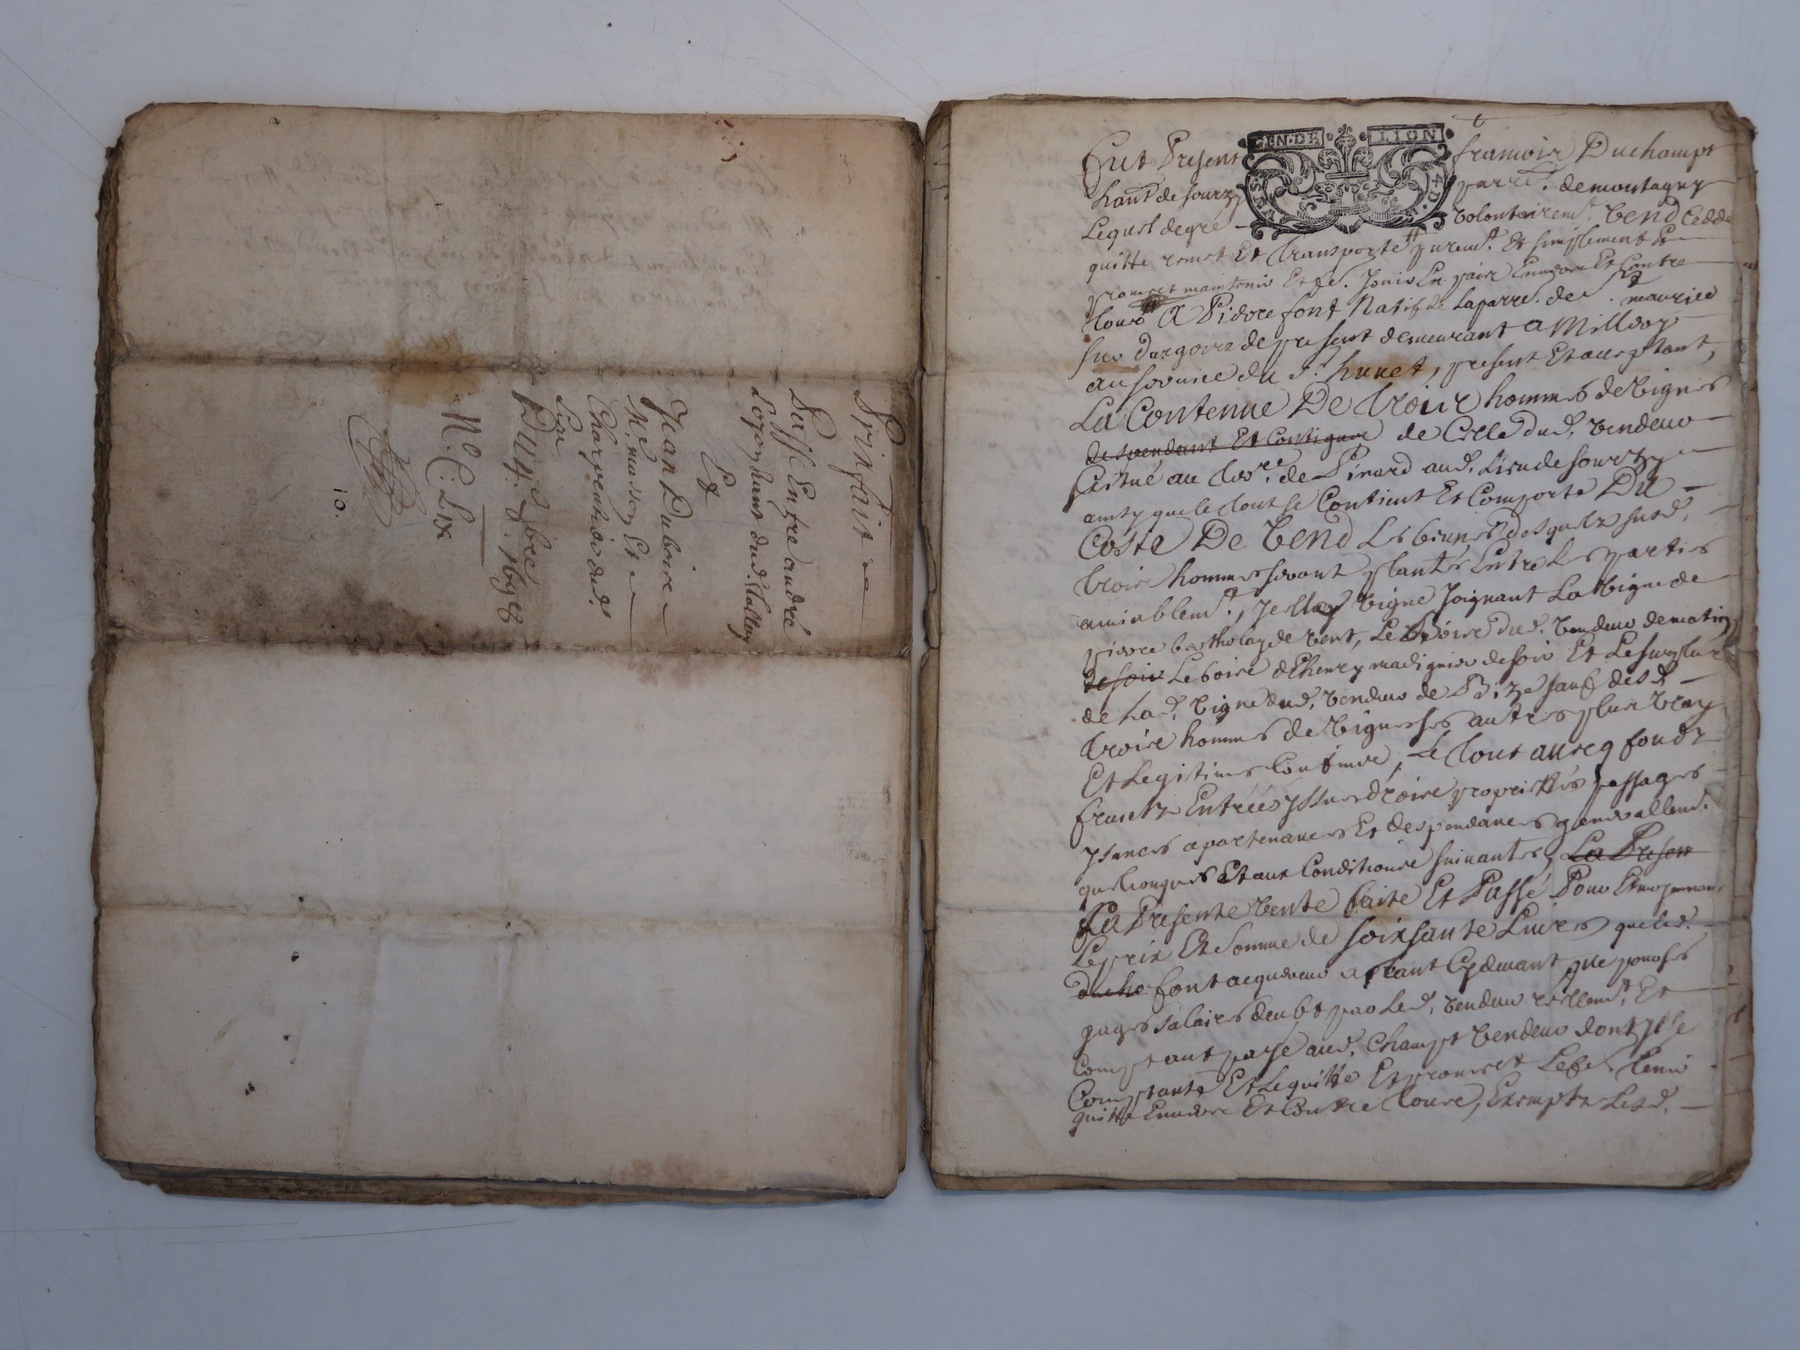 Prixfait
Passé Entre andré
Loyon dud.
Et
Jean Duboire
Me. masson Et
Charpentier dud.
Lieu
Du 4e 9bre 1698
No. C. Lix
10.
GEN. DE LION
Fut Present francois Duchampt
hant de sourzy parre. de montagny
Lequel de gré volontairemt. Vend Cedde
quitte remet Et Transporte puremt. Et simplement Et
promet maintenir Et de. Jouir En paix Envers Et Contre
tous A Pierre font Natif de La parre. de St. maurice
sur dargoire de present demeurant a Millery
au service du Sr. hunet, present Et acceptant,
La Contenue De Trois hommes de Vignes
despendant Et Contigue de Celle dud. Vendeur
Cituè au Terre. de Pinard aud. Lieu de sourzy
ainsy que le tout se Contient Et Comporte Du
Costé De Vend Les bornes desquelz susd.
trois hommes seront plantés Entre Les parties
amiablemt., Jcelle Vigne Joignant La Vigne de
pierre bartholay de Vent, Le dud. Vendeur de matin
de soir Le boire d'Henry madignier de soir Et Le surplus
de Lad. Vigne dud. Vendeur de Bize sauf desd.
trois hommes de Vignes ses autres plus Vray
Et Legitimes Confins, Le Tout avecq fondz
fruictz Entrées yssues droits proprietés passages
aysances apartenances Et despendances generallemt.
quelconques Et aux Conditions suivantes, La Presen
La Presente Vente faite Et Passé Pour Et moyennant
Le prix Et Somme de soixsante Livres que led.
ducha font acquereur
gages salaires deubt par Led. Vendeur reellemt. Et
Comptant payé aud. Champt Vendeur dont Jl se
Contante Et Le quitte Et promet Le tenir
quitte Envers Et Contre tous, Lesd.